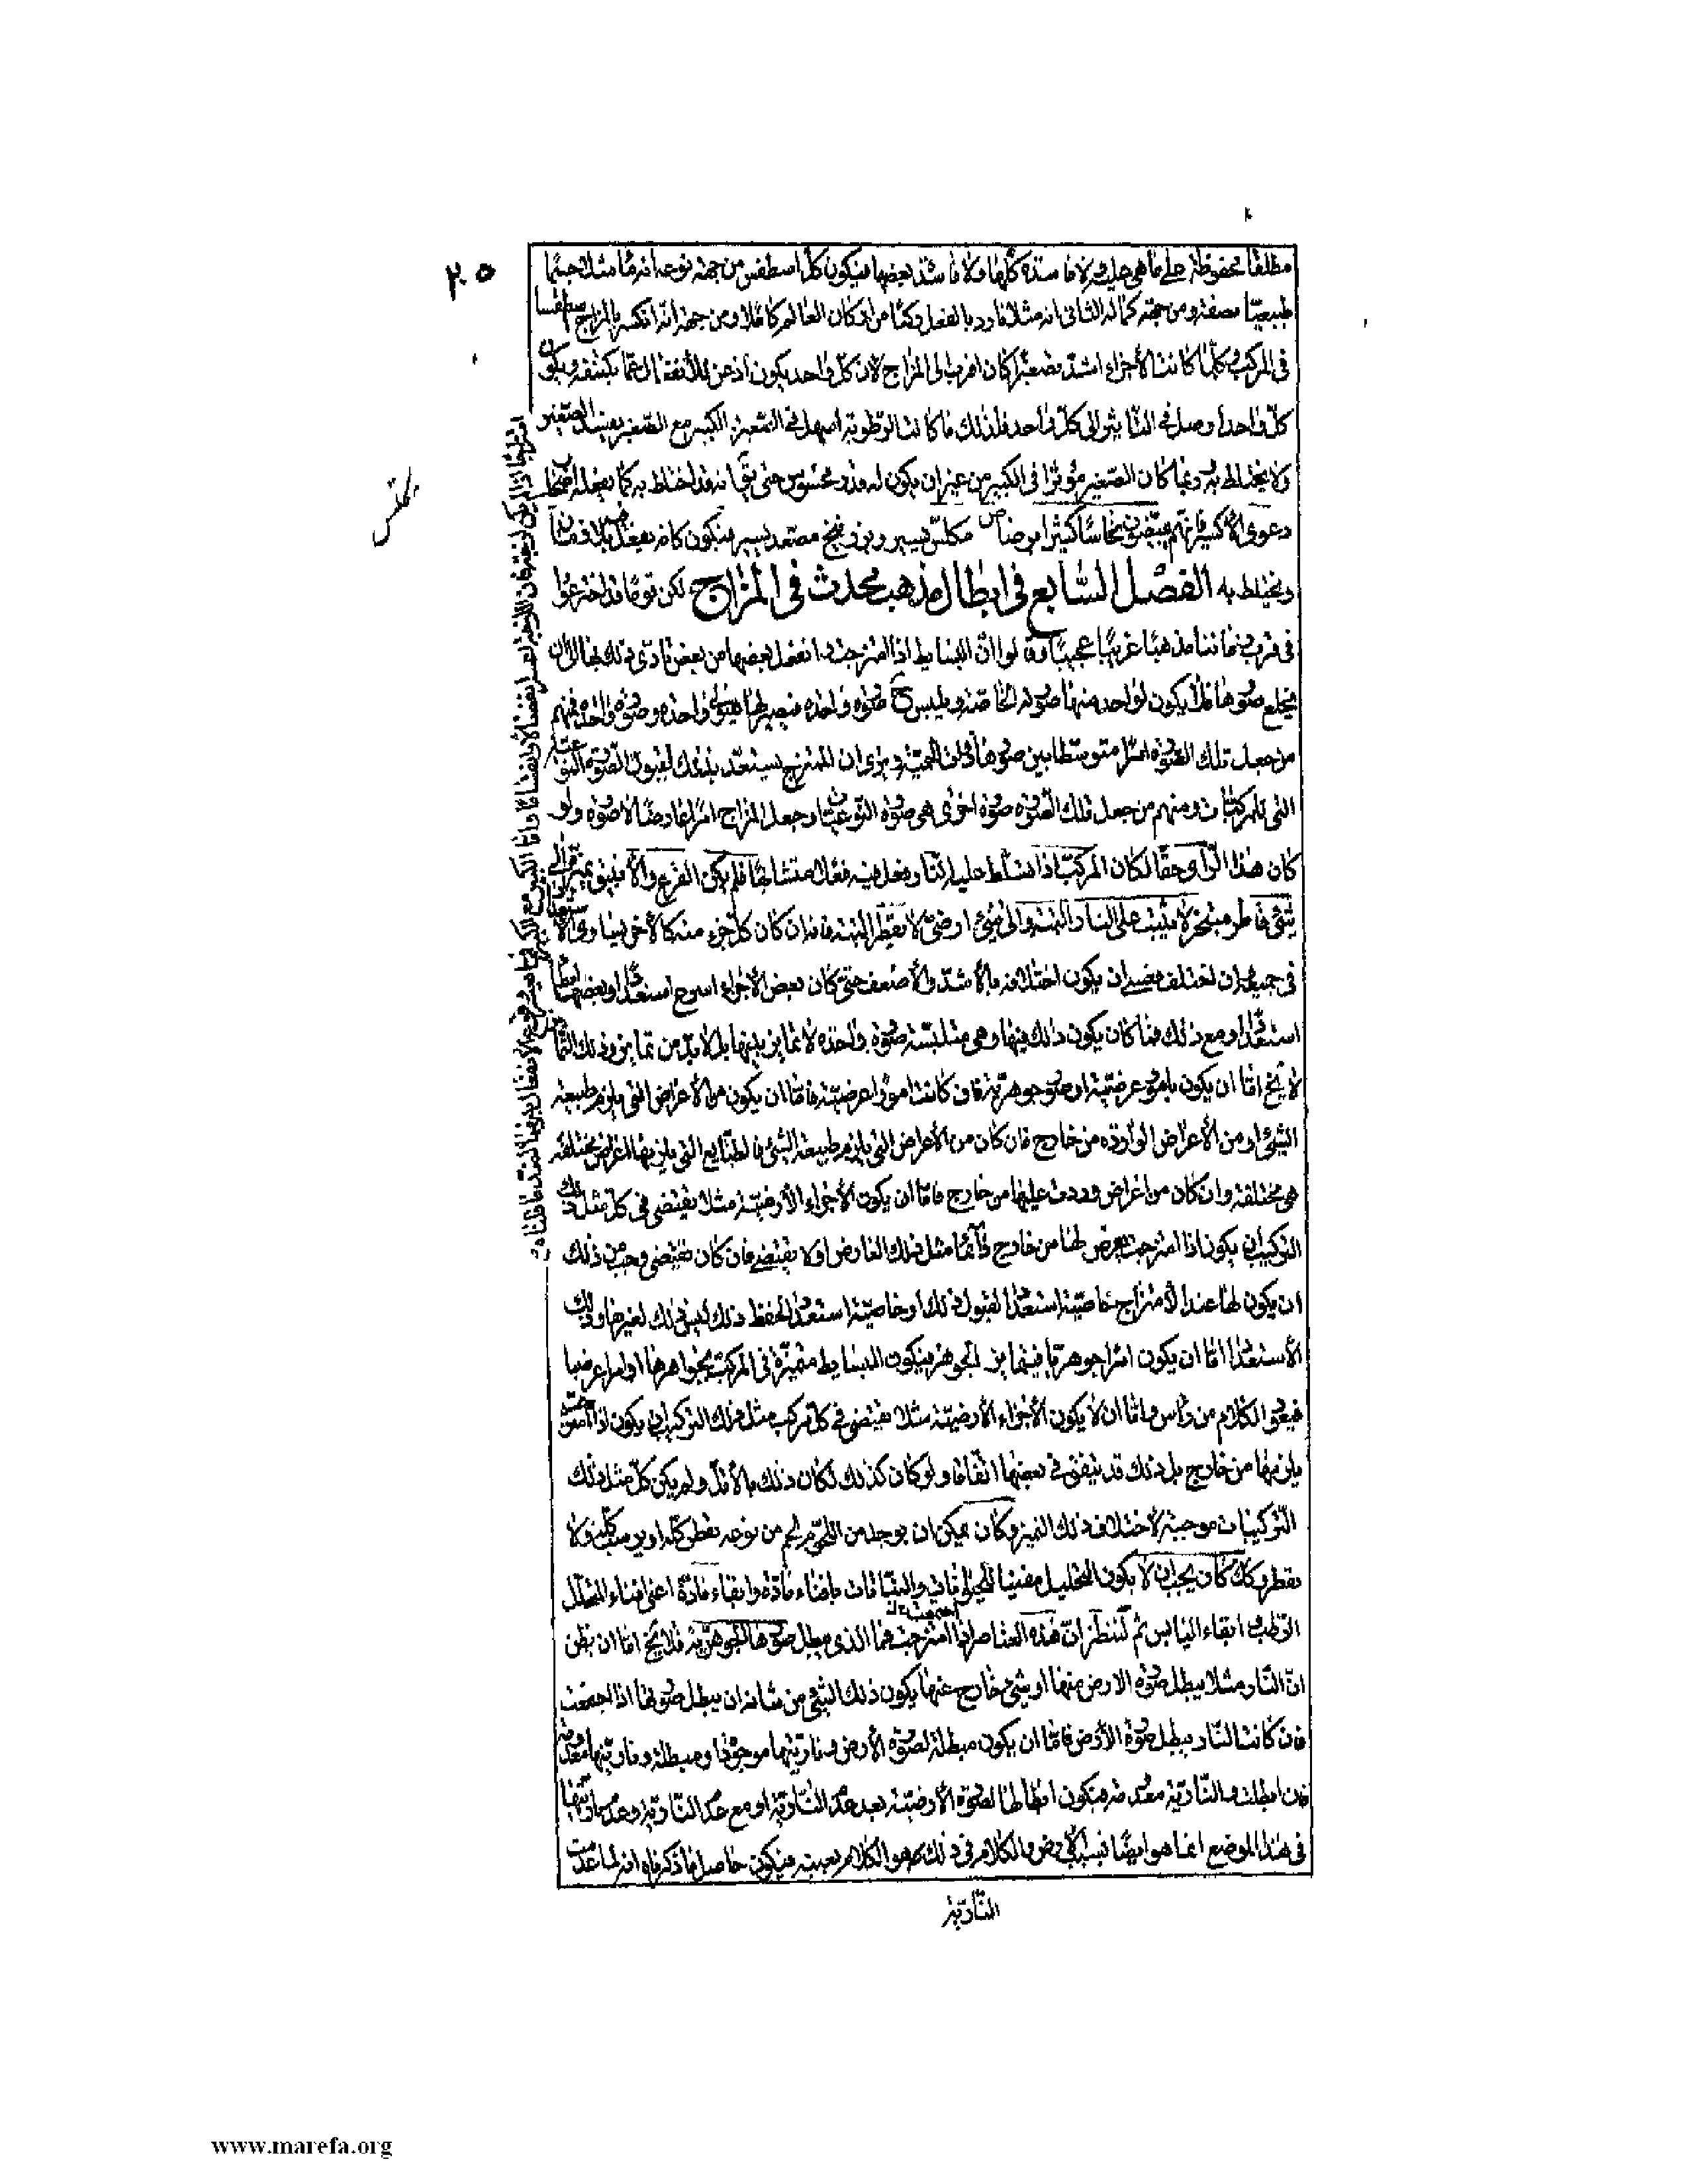 ٢٠٥
مطلقا محفوظة على ما هى عليه لا فاسدة كلها ولا فاسد بعضها فيكون كل اسطقس من جهة نوعه انه ماء مثلا جسما
طبيعيا بصفة ومن جهة كماله الثانى انه مثلا بارد بالفعل وركنا من اركان العالم كاملا ومن جهة انه انكسر بالمزاج اسطقسا
فى المركب وكلما كانت الأجزاء اشد تصغرا كان اقرب الى المزاج لان كل واحد يكون اذعن للأنفعال عما يكتنفه ويكون
كل واحد اوصل فى التاثير الى كل واحد فلذلك ما كانت الرطوبة اسهل فى الكبير مع الصغير يفسد الصغير
ولا يختلط به وربما كان الصغير مؤثرا فى الكبير من غير ان يكون له قدر محسوس حتى يقال انه قد اختلط به كما يفعله اصحاب
دعوى الأكسير فانهم يبيضون نحاسا كثيرا برصاص مكلس يسير وزرنيخ مصعد يسير فيكون كانه يفعل بلا زمان
ويختلط به الفصل السابع فى ابطال مذهب محدث فى المزاج لكن قوما قد اخترعوا
فى قرب زماننا مذهبا غريبا عجيبا وقالوا ان البسايط اذا امتزجت وانفعل بعضها من بعض تادى ذلك بها الى ان
يخلع صورها فلا يكون لواحد منها صورته الخاصة ويلبس ح صورة واحدة فيصير لها هيولى واحدة وصورة واحدة فمنهم
من جعل تلك الصورة امرا متوسطا بين صورها ذات الحمية ويرى ان الممتزج يستعد بذلك لقبول الصورة النوعية
التى للمركبات ومنهم من جعل تلك الصورة صورة اخرى هى صورة النوعيات وجعل المزاج امرا عارضا لا صورة ولو
كان هذا الراى حقا لكان المركب اذا تسلط عليه النار فعل فيه فعلا متشابها فلم يكن القرع والأنبيق يميزه الى
شئ قاطر متبخر لا يثبت على النار البتة والى شئ ارضى لا يقطر البتة فانه ان كان كل جزء منه كالأخر تساوى الاستعداد
فى جميعه او ان اختلف فعسى ان يكون اختلافه بالأشد والأضعف حتى كان بعض الأجزاء اسرع استعدادا وبعضها ابطأ
استعدادا ومع ذلك فما كان يكون ذلك فيها وهى متلبسة صورة واحدة لا تمايز بينها بل لا بد من تمايز وذلك التمايز
لا يخ اما ان يكون بامور عرضية او صور جوهرية فان كانت امورا عرضية فاما ان يكون من الأعراض التى يلزم طبيعة
الشئ او من الأعراض الواردة من خارج فان كان من الأعراض التى يلزم طبيعة الشئ فالطبايع التى يلزمها اعراض مختلفة
هى مختلفة وان كان من اعراض وردت عليها من خارج فاما ان يكون الأجزاء الأرضية مثلا يقتضى فى كل مثل ذلك
التركيب ان يكون اذا امتزجت يعرض لها من خارج دائما مثل ذلك العارض او لا يقتضى فان كان يقتضى وجب من ذلك
ان يكون لها عند الأمتزاج خاصية استعداد لقبول ذلك او خاصية استعداد لحفظ ذلك ليس ذلك لغيرها وذلك
الأستعداد اما ان يكون امرا جوهريا فيتمايز الجوهر فيكون البسايط متميزة فى المركب بجواهرها او امرا عرضيا
فيعود الكلام من راس واما ان لا يكون الأجزاء الأرضية مثلا يقتضى فى كل تركيب مثل ذلك التركيب ان يكون لها امور
يلزمها من خارج بل ذلك قد يتفق فى بعضها اتفاقا ولو كان كذلك لكان ذلك بالأقل ولم يكن كل مثل ذلك
التركيبات موجبة لأختلاف ذلك التميز وكان يمكن ان يوجد من اللحوم لحم من نوعه يقطر كله او يرسب كله ولا
يقطر وكك كان يجب ان لا يكون التحليل مفنيا للحيوانات والنباتات بافناء مادة وابقاء مادة اعنى افناء المتحلل
الرطب وابقاء اليابس ثم لننظر ان هذه العناصر اذا امتزجت فما الذى يبطل صورها الجوهرية فلا يخ اما ان يظن
ان النار مثلا يبطل صورة الارض منها او شئ خارج عنها يكون ذلك الشئ من شانه ان يبطل صورتها اذا اجتمعت
فان كانت النار يبطل صورة الأرض فاما ان يكون مبطلة لصورة الأرض وناريتها موجودة او مبطلة وناريتها معدومة
فان ابطلت والنارية معدومة فيكون ابطالها لصورة الأرضية بعد عدم النارية او مع عدم النارية وعدم ناريتها
فى هذا الموضع انما هو ايضا بسبب الأرض والكلام فى ذلك هو الكلام بعينه فيكون حاصل ما ذكرناه انه لما عدمت
النارية
www.marefa.org